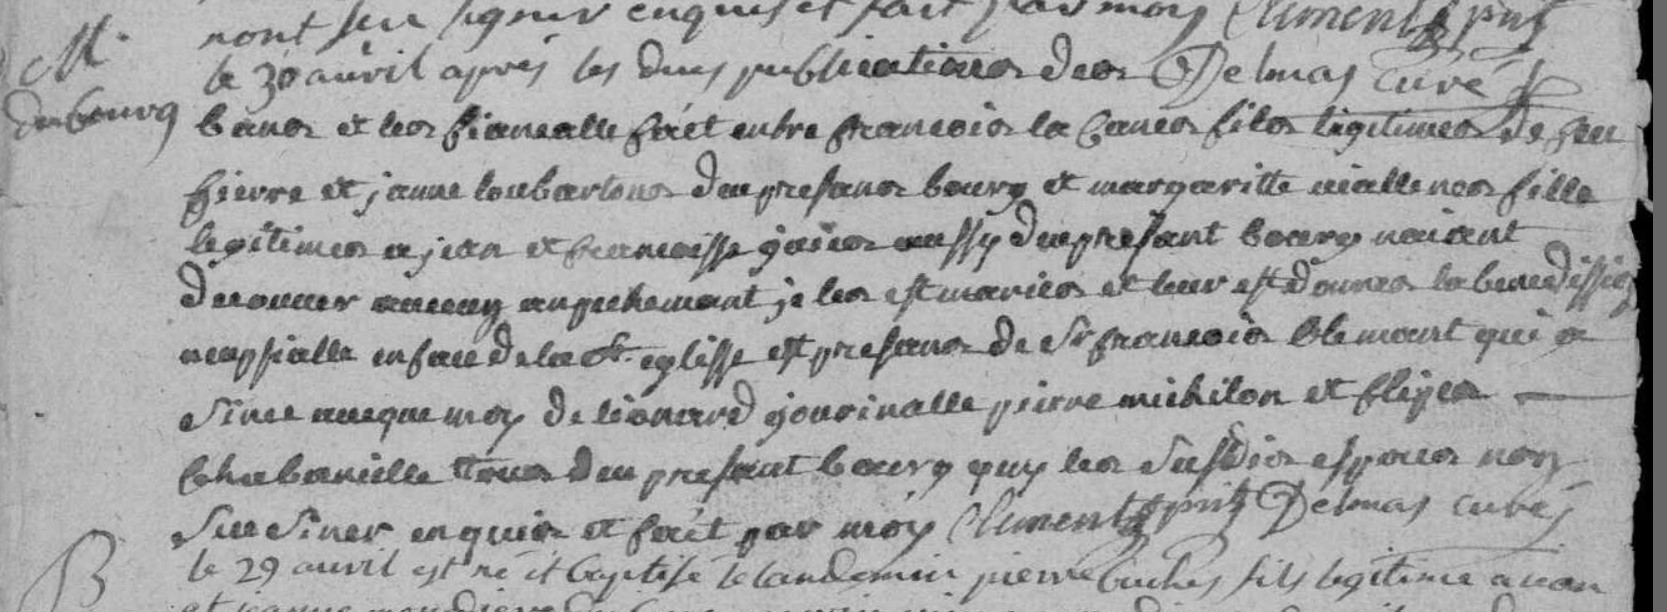 nont seu signer enquis et fait par moy Clement pnt
M.
du bourg
le 30 auril apres les dues publications des Delmas curé
bans et les fiansalle fáet entre francois la Caues fils ligitimes de feu
pierre et janne loubartous du presans bourg et margaritte uiallenes fille
legitimes a jean et francoisse jaies aussy du presant bourg naiant
decouuer aucuy anpechemant je les est maries et leur est donnes la benedission
nupsialle en face de la Ste eglisse est presans de Sr francois Clemant qui a
Sinee aueque moy de lionard jourinalle pierre michilon et
Chabanielle tous du presant bourg quy les Susdis espous non
Sue Siner enquis et fáet par moy Clement pnt Delmas curé
B
le 29 auril est né et baptisé le landemin pierre fils legitime a jean
et jeanne